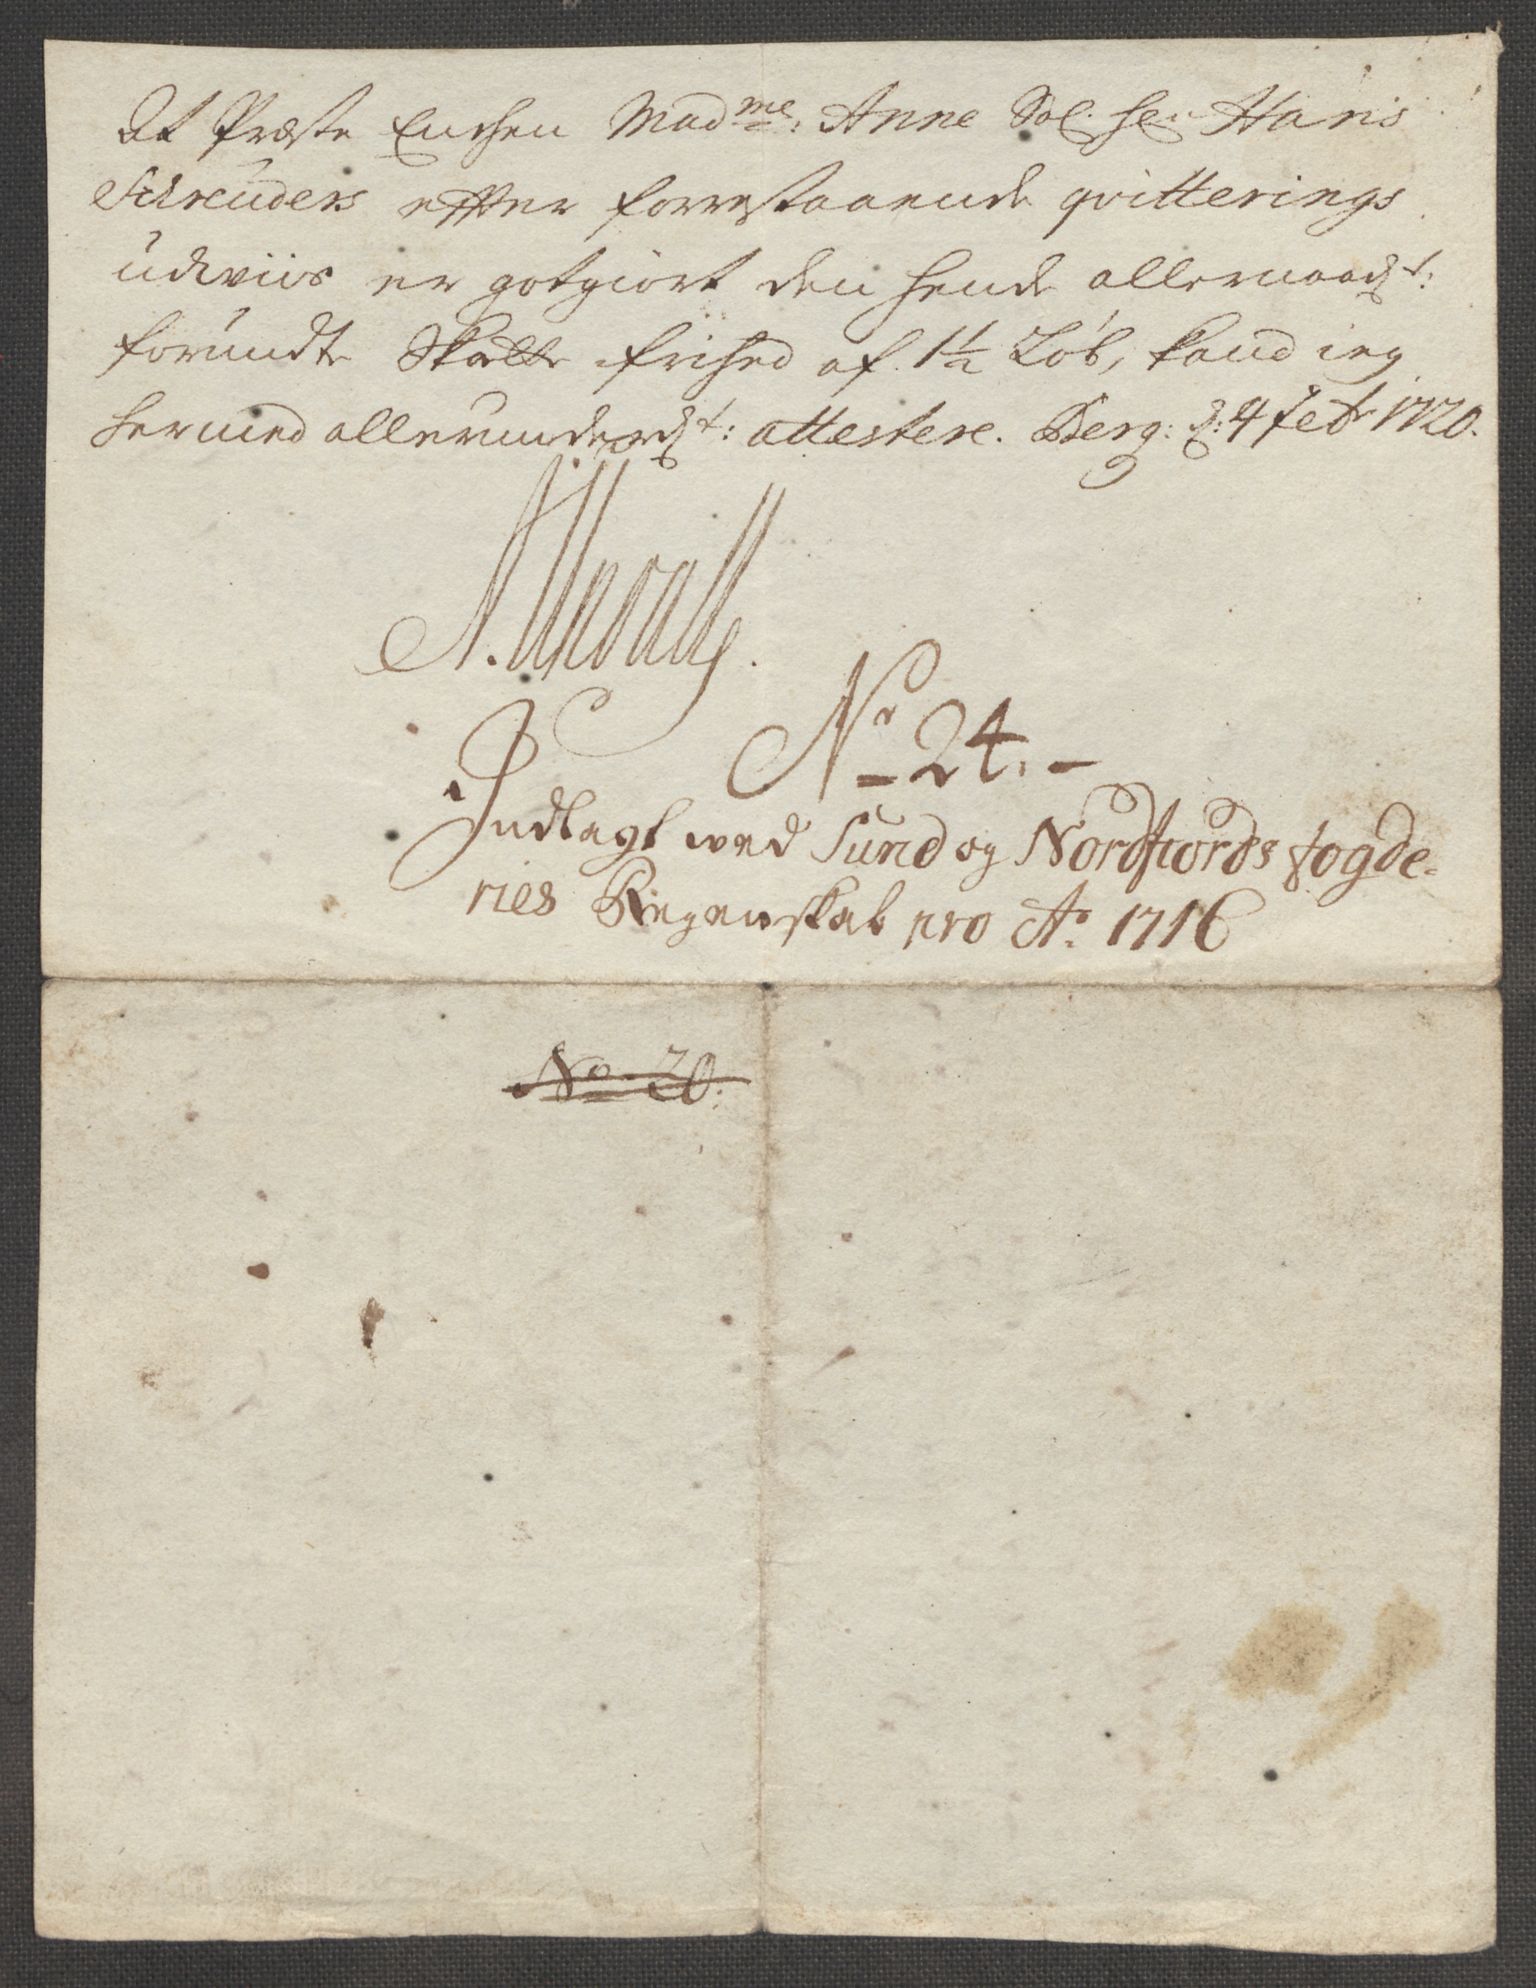 At Præste Enchen Madme: Anne Sal. Her Hans
Schreuders efter forrestaaende qvitterings
udviis er gotgiort den hende allernaadst:
forundte Skatte frihed af 1½ Løb, kand ieg
hermed allerunderdst: attestere. Berg: d: 4 Feb 1720.
N° 24.
Indlagt ved Sund og Nordfiords fogde-
ries Regenskab pro A° 1716
No 20.